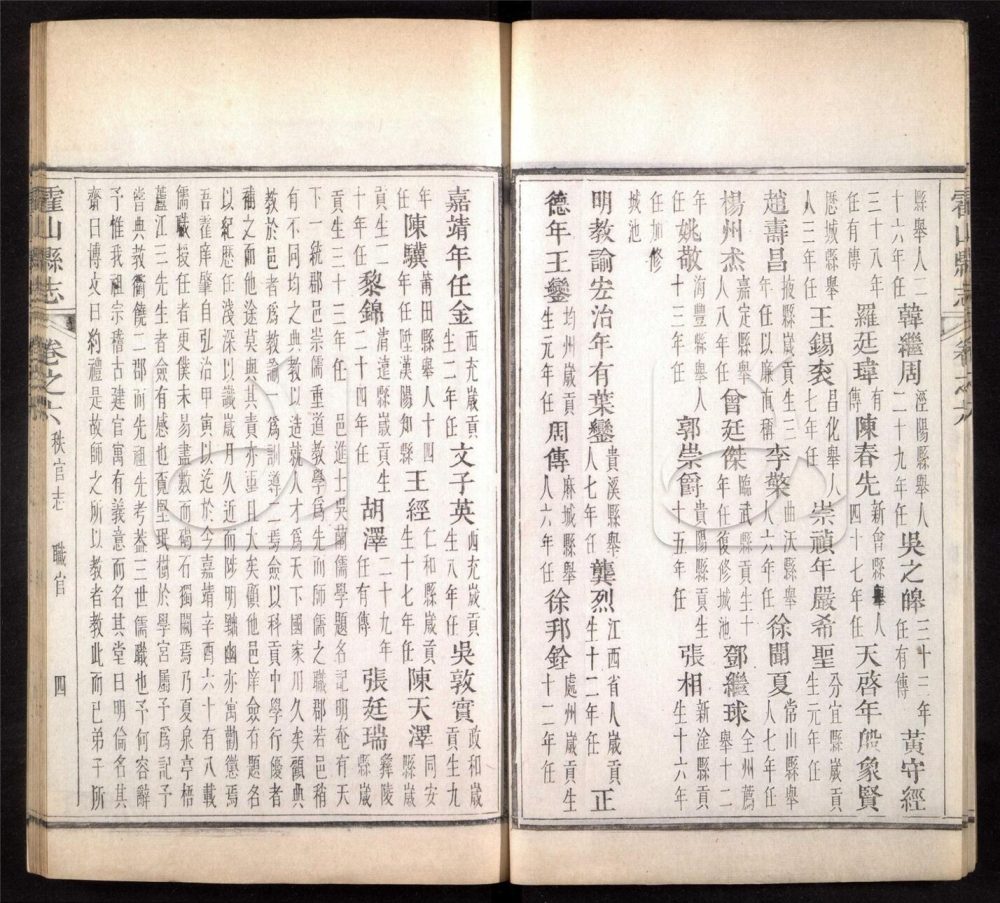 縣舉人二十六年任韓繼周涇陽縣舉人二十九年任吳之皡三十三年任有傳黃守經
三十八年任有傳羅廷瑋有傳陳春先新會縣舉人四十七年任天啓年殷象賢
歷城縣舉人三年任王錫衮昌化舉人七年任崇禎年嚴希聖分宜縣歲貢生元年任
趙壽昌掖縣歲貢生三年任以廉直稱李檠曲沃縣舉人六年任徐聞夏常山縣舉人七年任
楊州杰嘉定縣舉人八年任曾廷傑臨武縣貢生十年任復修城池鄧繼球全州薦舉十二
年任姚敬海豐縣舉人十三年任郭崇爵貴陽縣貢生十五年任張相新淦縣貢生十六年
任加修城池
明教諭宏治年有葉鑾貴溪縣舉人七年任龔烈江西省人歲貢生十二年任正
德年王鑾均州歲貢生元年任周傳麻城縣舉人六年任徐邦銓處州歲貢生十二年任
霍山縣志
嘉靖年任金西充歲貢生二年任文子英西充歲貢生八年任吳敦實政和歲貢生九
年任陳驥莆田縣舉人十四年任陞漢陽知縣王經仁和縣歲貢生十七年任陳天澤同安縣歲
貢生二十年任黎錦清遠縣歲貢生二十四年任胡澤二十九年任有傳張廷瑞彝陵縣歲
貢生三十三年任 邑進士吳蘭儒學題名記明奄有天
下一統郡邑崇儒重道教學爲先而師儒之職郡若邑稍
有不同均之典教以造就人才爲天下國家用久矣顧典
教於邑者爲教諭一爲訓導二焉僉以科貢中學行優者
補之而他途莫與其責亦重且大矣顧他邑庠僉有題名
以紀歷任淺深以識歲月久近而陟明黜幽亦寓勸懲焉
吾霍庠肇自弘治甲寅以迄於今嘉靖辛酉六十有八載
儒職授任者更僕未易盡數而碣石獨闕焉乃夏泉亭梧
蘆江三先生者僉有感也堅珉樹於學宮屬予爲記予
嘗典教衢饒二郡而先祖先考蓋三世儒職也予何容辭
予惟我祖宗稽古建官寓有議意而名其堂曰明倫名其
齋曰博文曰約禮是故師之所以教者教此而已弟子所
霍山縣志 卷之六 秩官志 職官 四